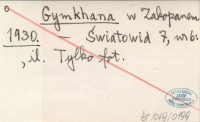 Gymkhana w Zakopanem
1930. — Światowid 7, nr 6:
, il. Tylko fot.